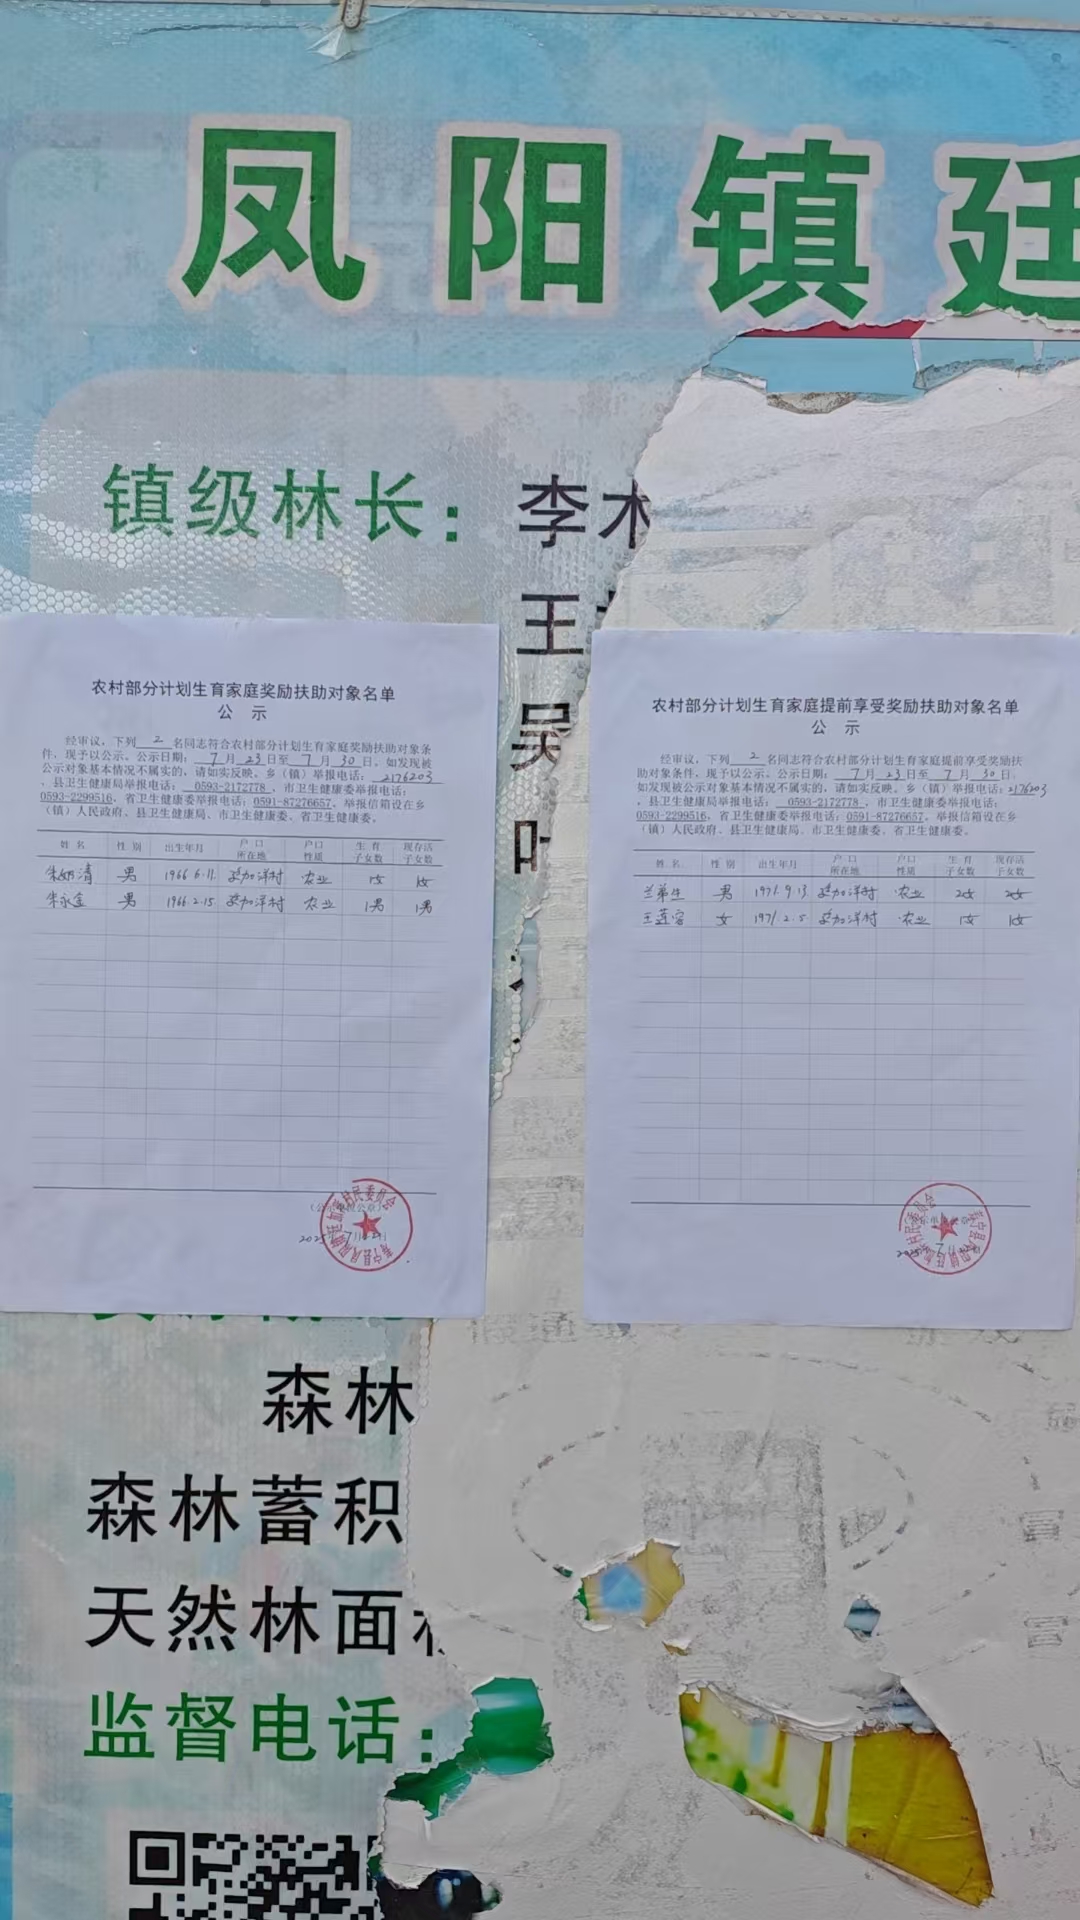 凤阳镇廷
镇级林长：李木
王
吴
叶
农村部分计划生育家庭奖励扶助对象名单
公 示
经审议，下列 2 名同志符合农村部分计划生育家庭奖励扶助对象条
件，现予以公示。公示日期： 7 月 23 日至 7 月 30 日。如发现被
公示对象基本情况不属实的，请如实反映。乡（镇）举报电话： 2176203
，县卫生健康局举报电话： 0593-2172778 ，市卫生健康委举报电话：
0593-2299516，省卫生健康委举报电话：0591-87276657，举报信箱设在乡
（镇）人民政府、县卫生健康局、市卫生健康委、省卫生健康委。
姓 名 性 别 出生年月 户 口 所在地 户口 性质 生 育 子女数 现存活 子女数
清 男 1966.6.11 加洋村 农业 1女 1女
朱永金 男 1966.2.15 加洋村 农业 1男 1男
（公示单位公章）
2025 7月
农村部分计划生育家庭提前享受奖励扶助对象名单
公 示
经审议，下列 2 名同志符合农村部分计划生育家庭提前享受奖励扶
助对象条件，现予以公示。公示日期： 7 月 23 日至 7 月 30 日。
如发现被公示对象基本情况不属实的，请如实反映。乡（镇）举报电话：2176203
，县卫生健康局举报电话： 0593-2172778 ，市卫生健康委举报电话：
0593-2299516，省卫生健康委举报电话：0591-87276657，举报信箱设在乡
（镇）人民政府、县卫生健康局、市卫生健康委、省卫生健康委。
姓 名 性 别 出生年月 户 口 所在地 户口 性质 生 育 子女数 现存活 子女数
兰弟生 男 1971.9.13 加洋村 农业 2女 2女
王莲容 女 1971.2.5 加洋村 农业 1女 1女
2025 7月
森林
森林蓄积
天然林面
监督电话：